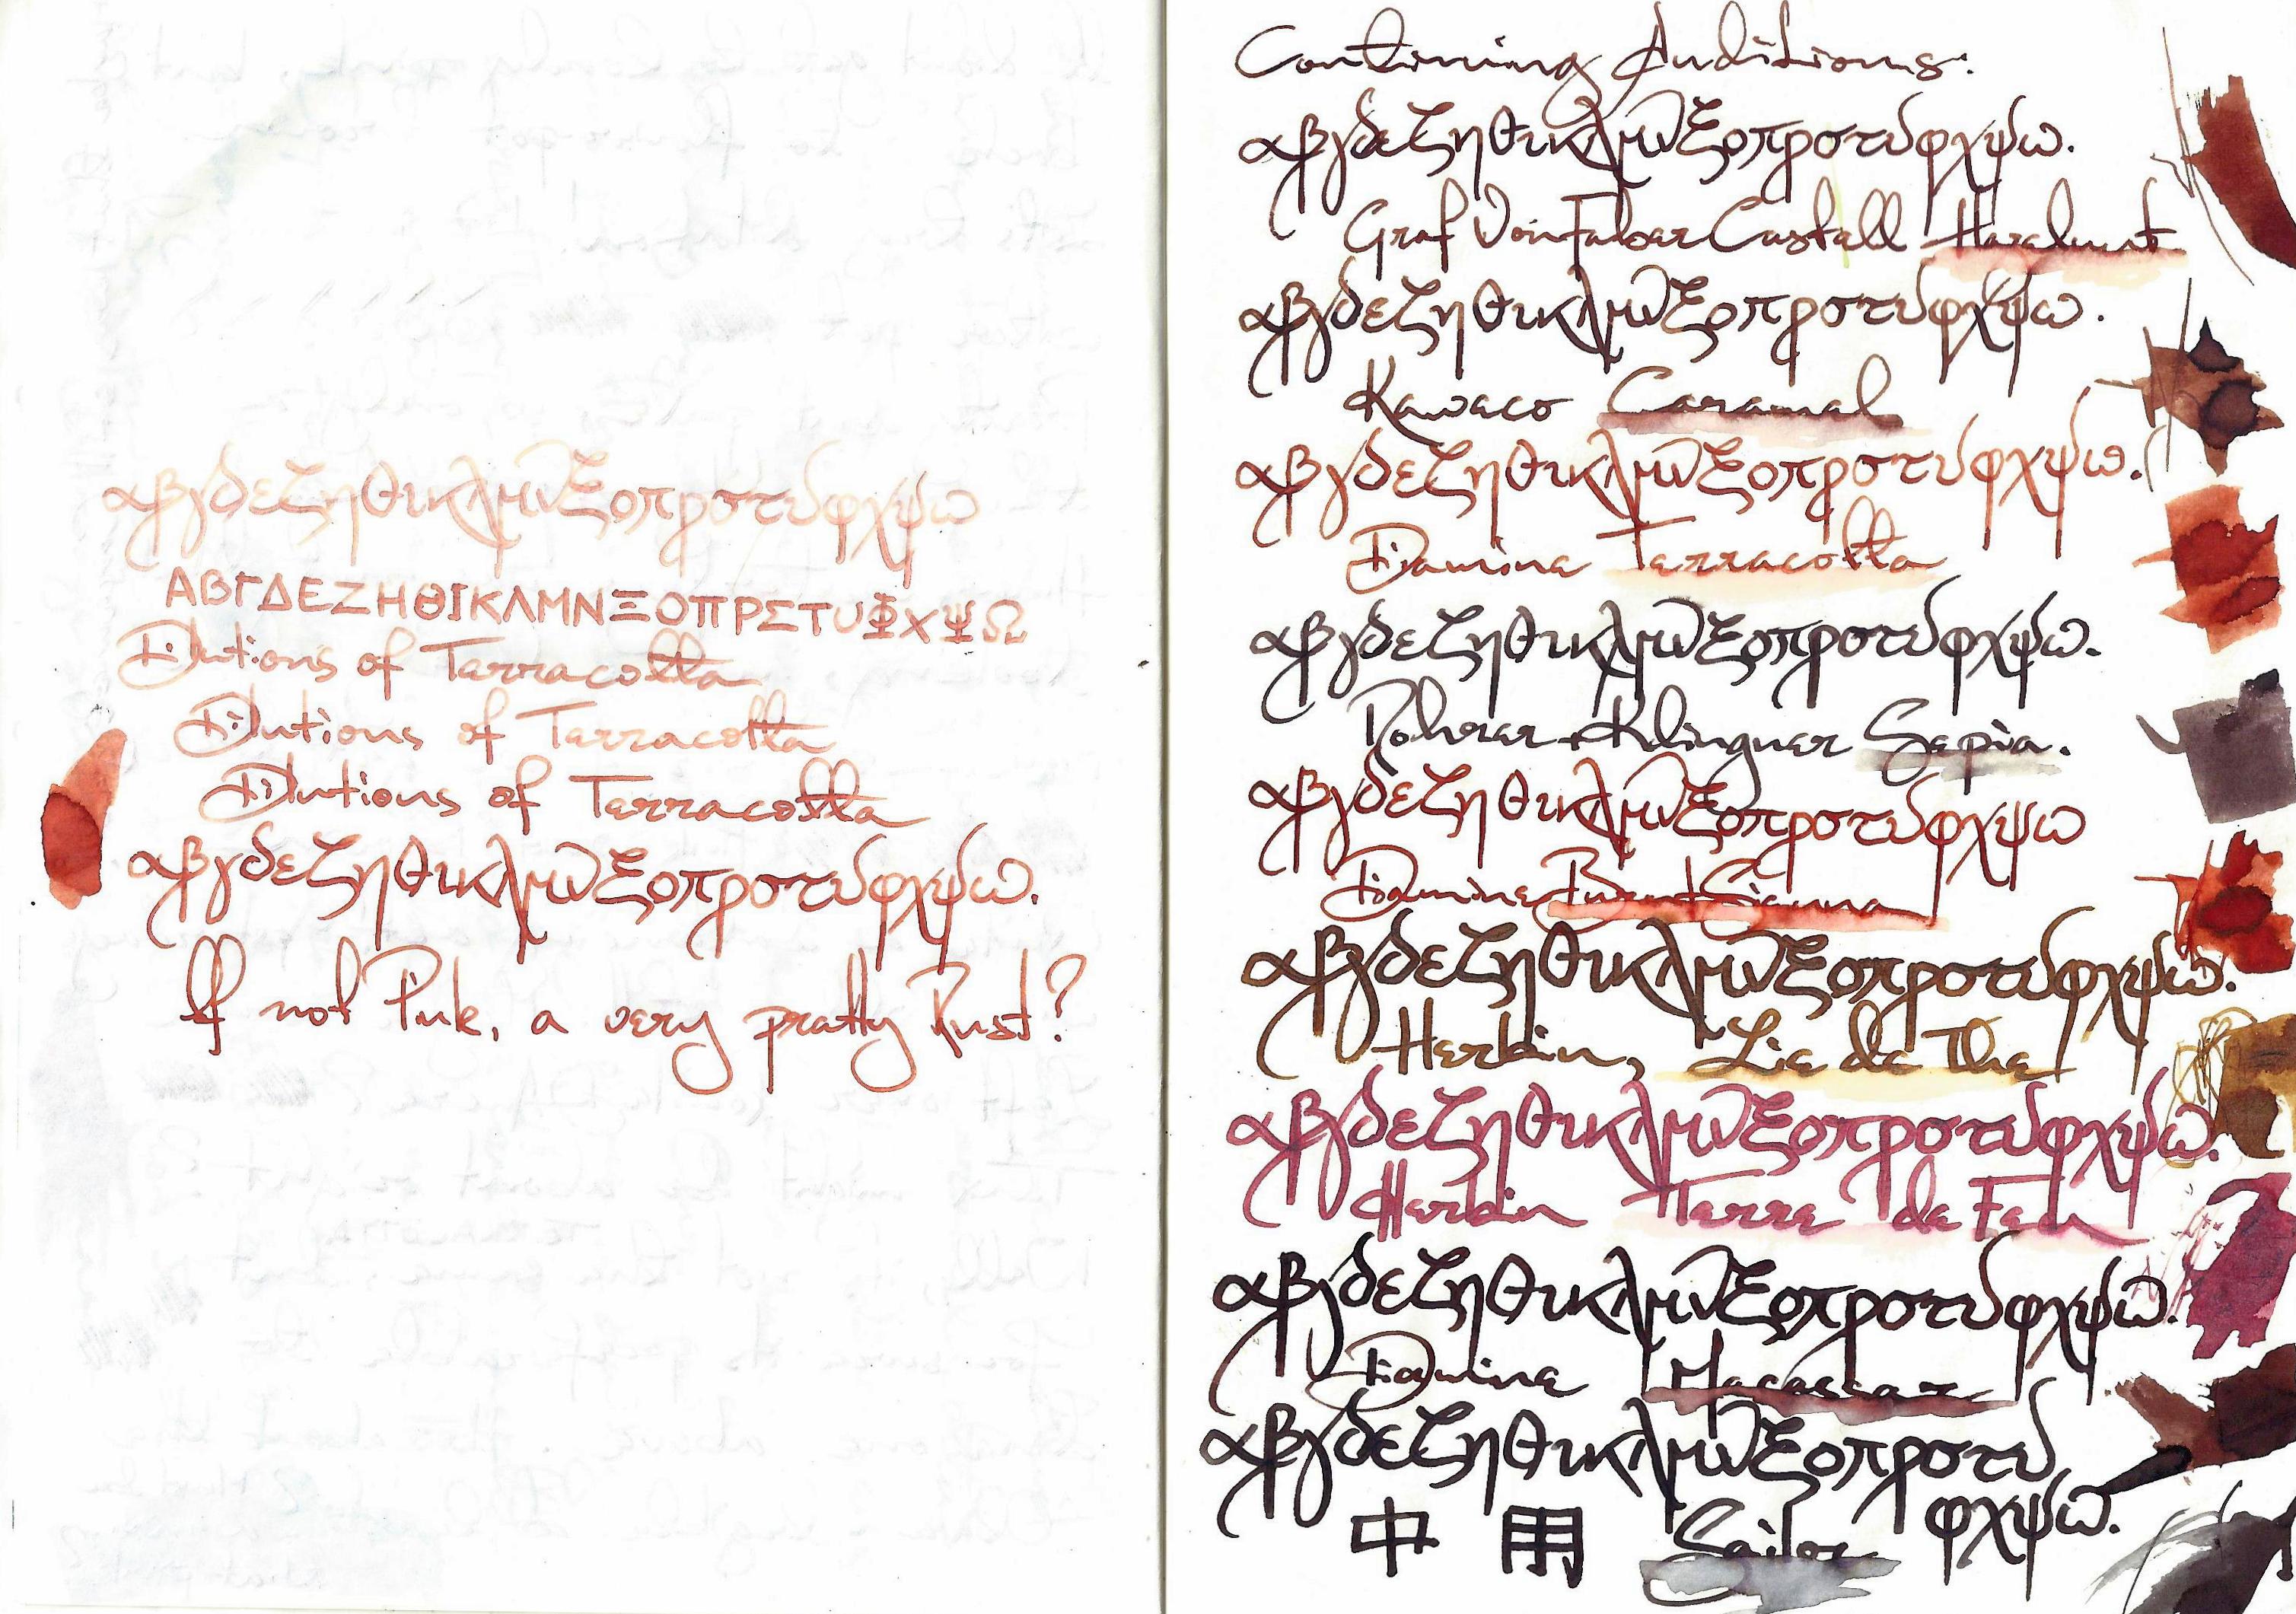 αβγδεζηθικλμνξοπρστυφχψω
ΑΒΓΔΕΖΗΘΙΚΛΜΝΞΟΠΡΣΤΥΦΧΨΩ
Dilutions of Terracotta
Dilutions of Terracotta
Dilutions of Terracotta
αβγδεζηθικλμνξοπρστυφχψω.
If not Pink, a very pretty Rust?
Continuing Auditions:
αβγδεζηθικλμνξοπρστυφχψω.
Graf Von Faber Castell Hazelnut
αβγδεζηθικλμνξοπρστυφχψω.
Kaweco Caramel
αβγδεζηθικλμνξοπρστυφχψω.
Diamine Terracotta
αβγδεζηθικλμνξοπρστυφχψω.
Rohrer + Klingner Sepia.
αβγδεζηθικλμνξοπρστυφχψω
Diamine Burnt Sienna
αβγδεζηθικλμνξοπρστυφχψω.
Herbin, Lie de The
αβγδεζηθικλμνξοπρστυφχψω.
Herbin Terre de Feu
αβγδεζηθικλμνξοπρστυφχψω.
Diamine Macassar
αβγδεζηθικλμνξοπρστυ
φχψω.
中 用 Sailor